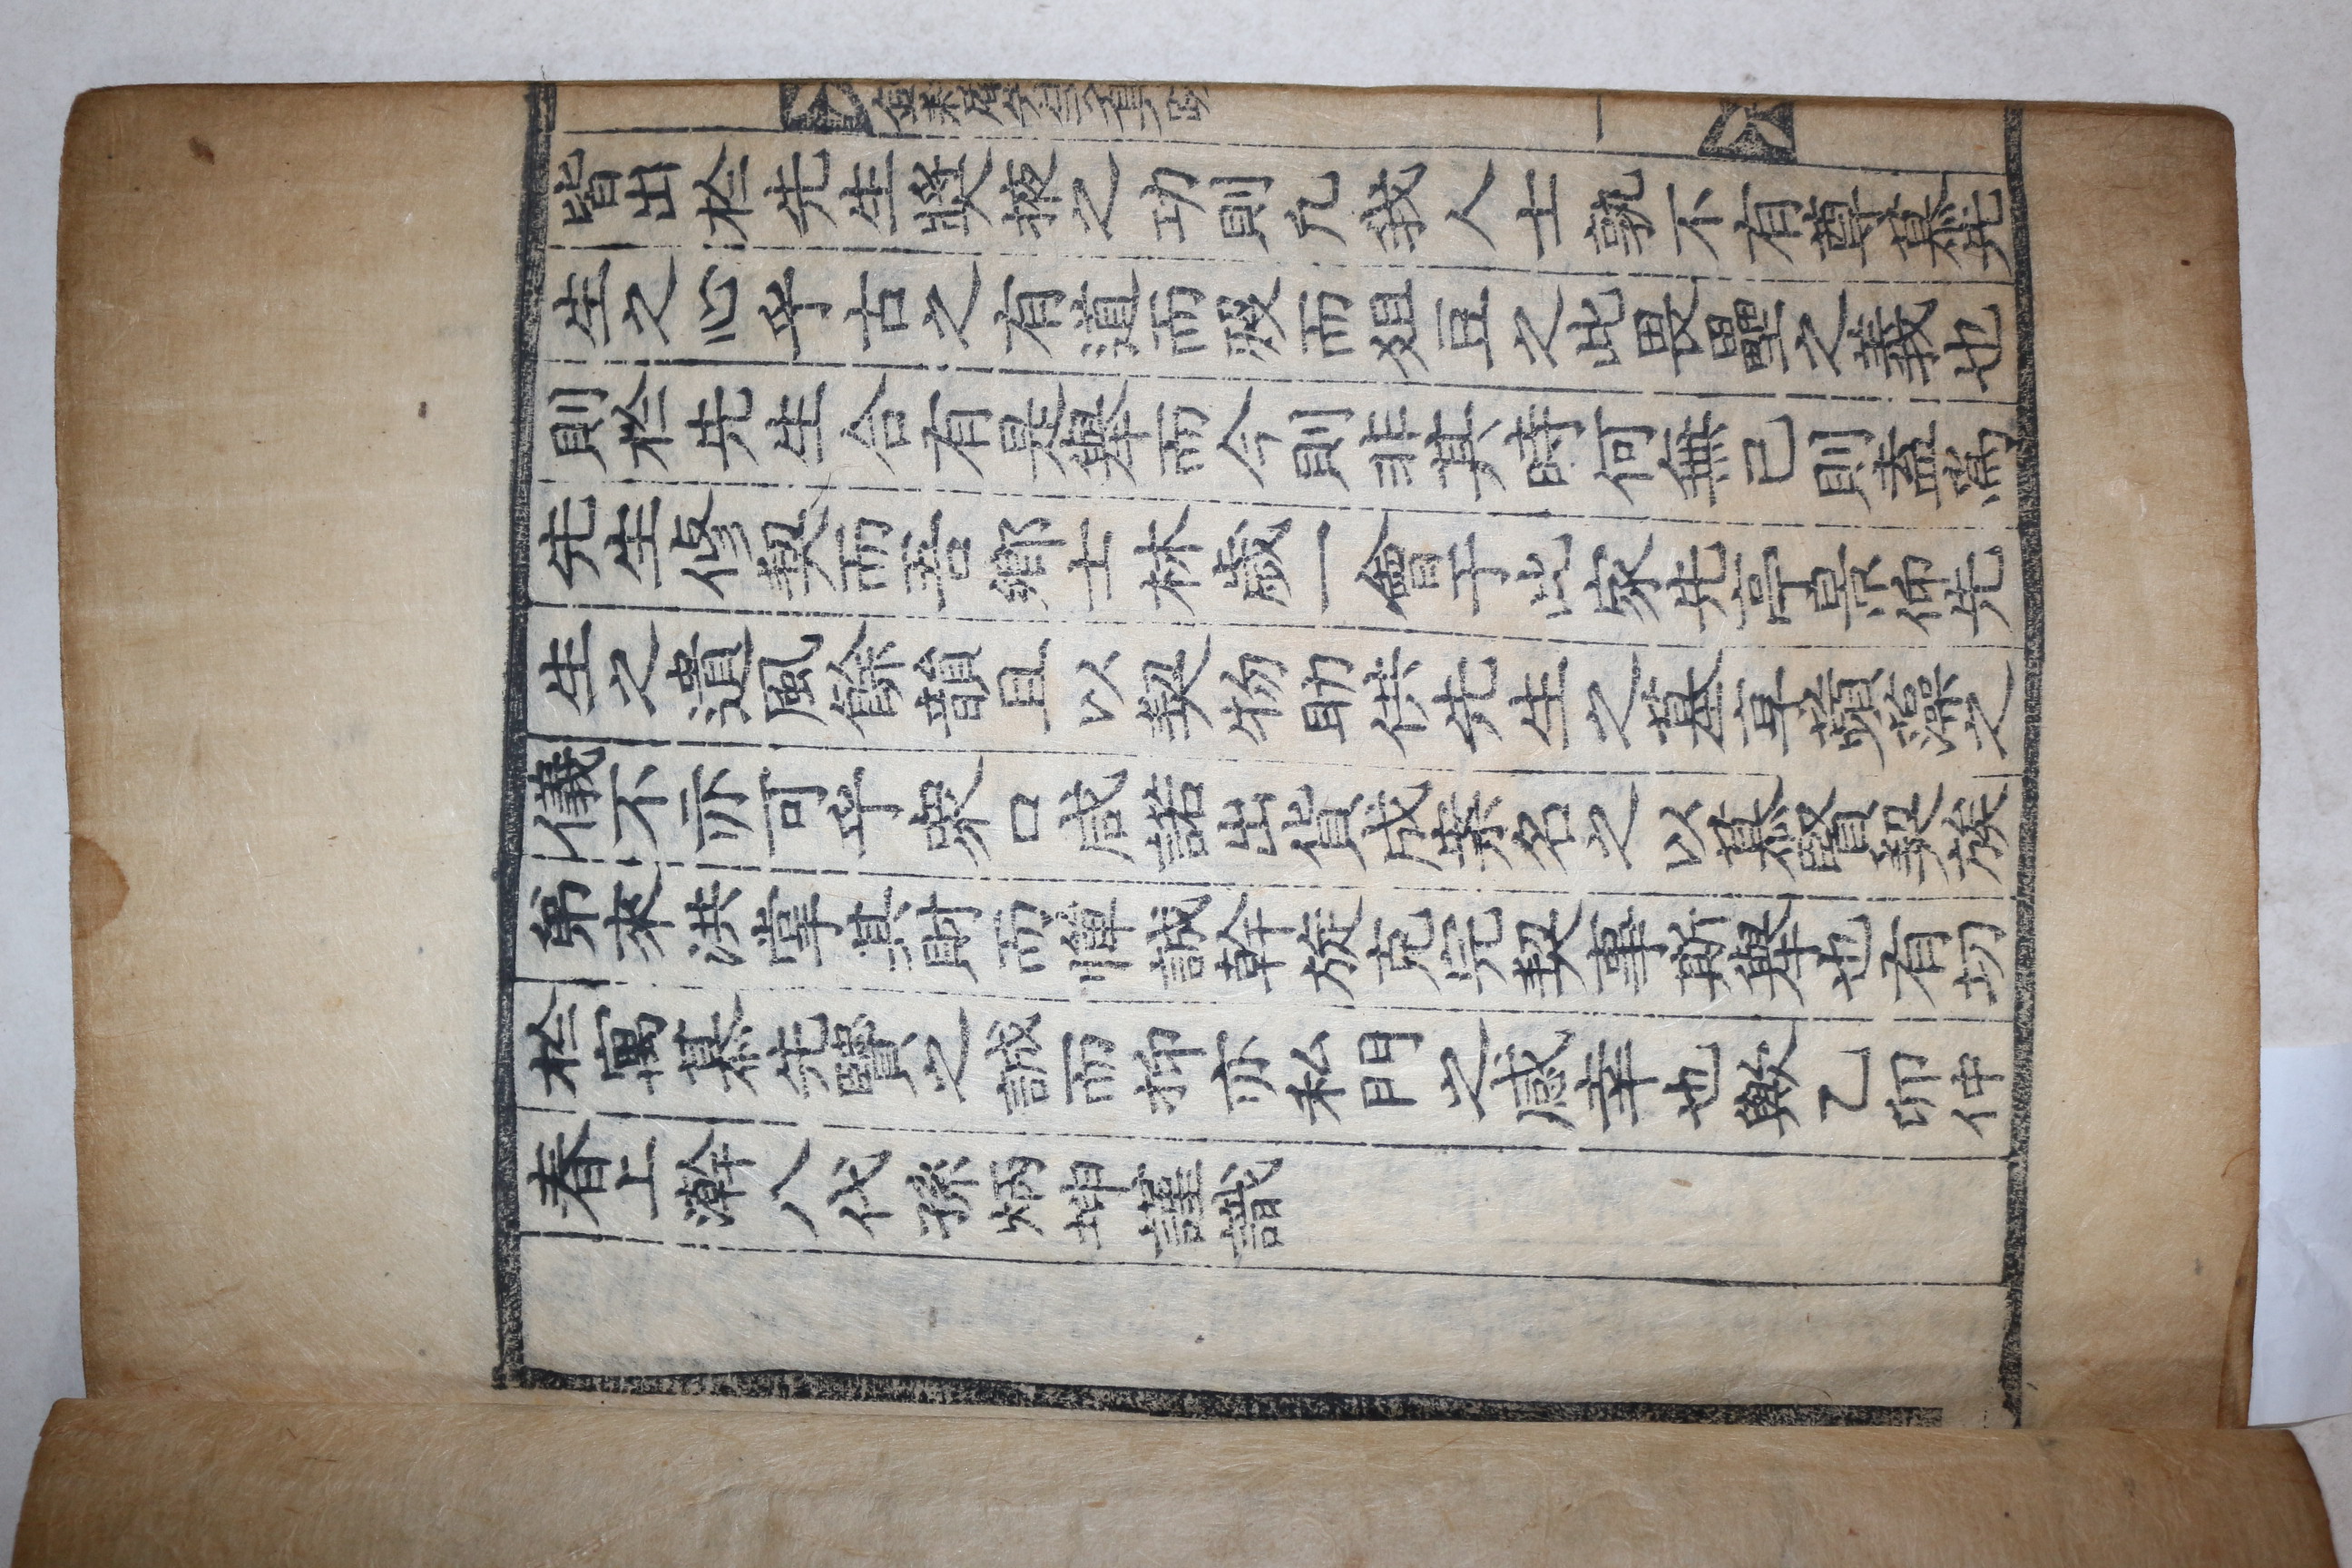 皆出於先生奬掖之功則凡我人士孰不有尊慕先
生之心乎古之有道而歿而俎豆之此畏壘之義也
則於先生合有是擧而今則非其時何無已則盍爲
先生修契而吾鄕士林歲一會于此家先亭景仰先
生之遺風餘韻且以契物助供先生之墓享蘋藻之
儀不亦可乎衆口咸諾出貲成案名之以慕賢契族
弟來洪掌其財而憚誠幹旋克完契事斯擧也有切
於寓慕先賢之誠而抑亦私門之感幸也歟乙卯仲
春上澣八代孫炳坤謹識